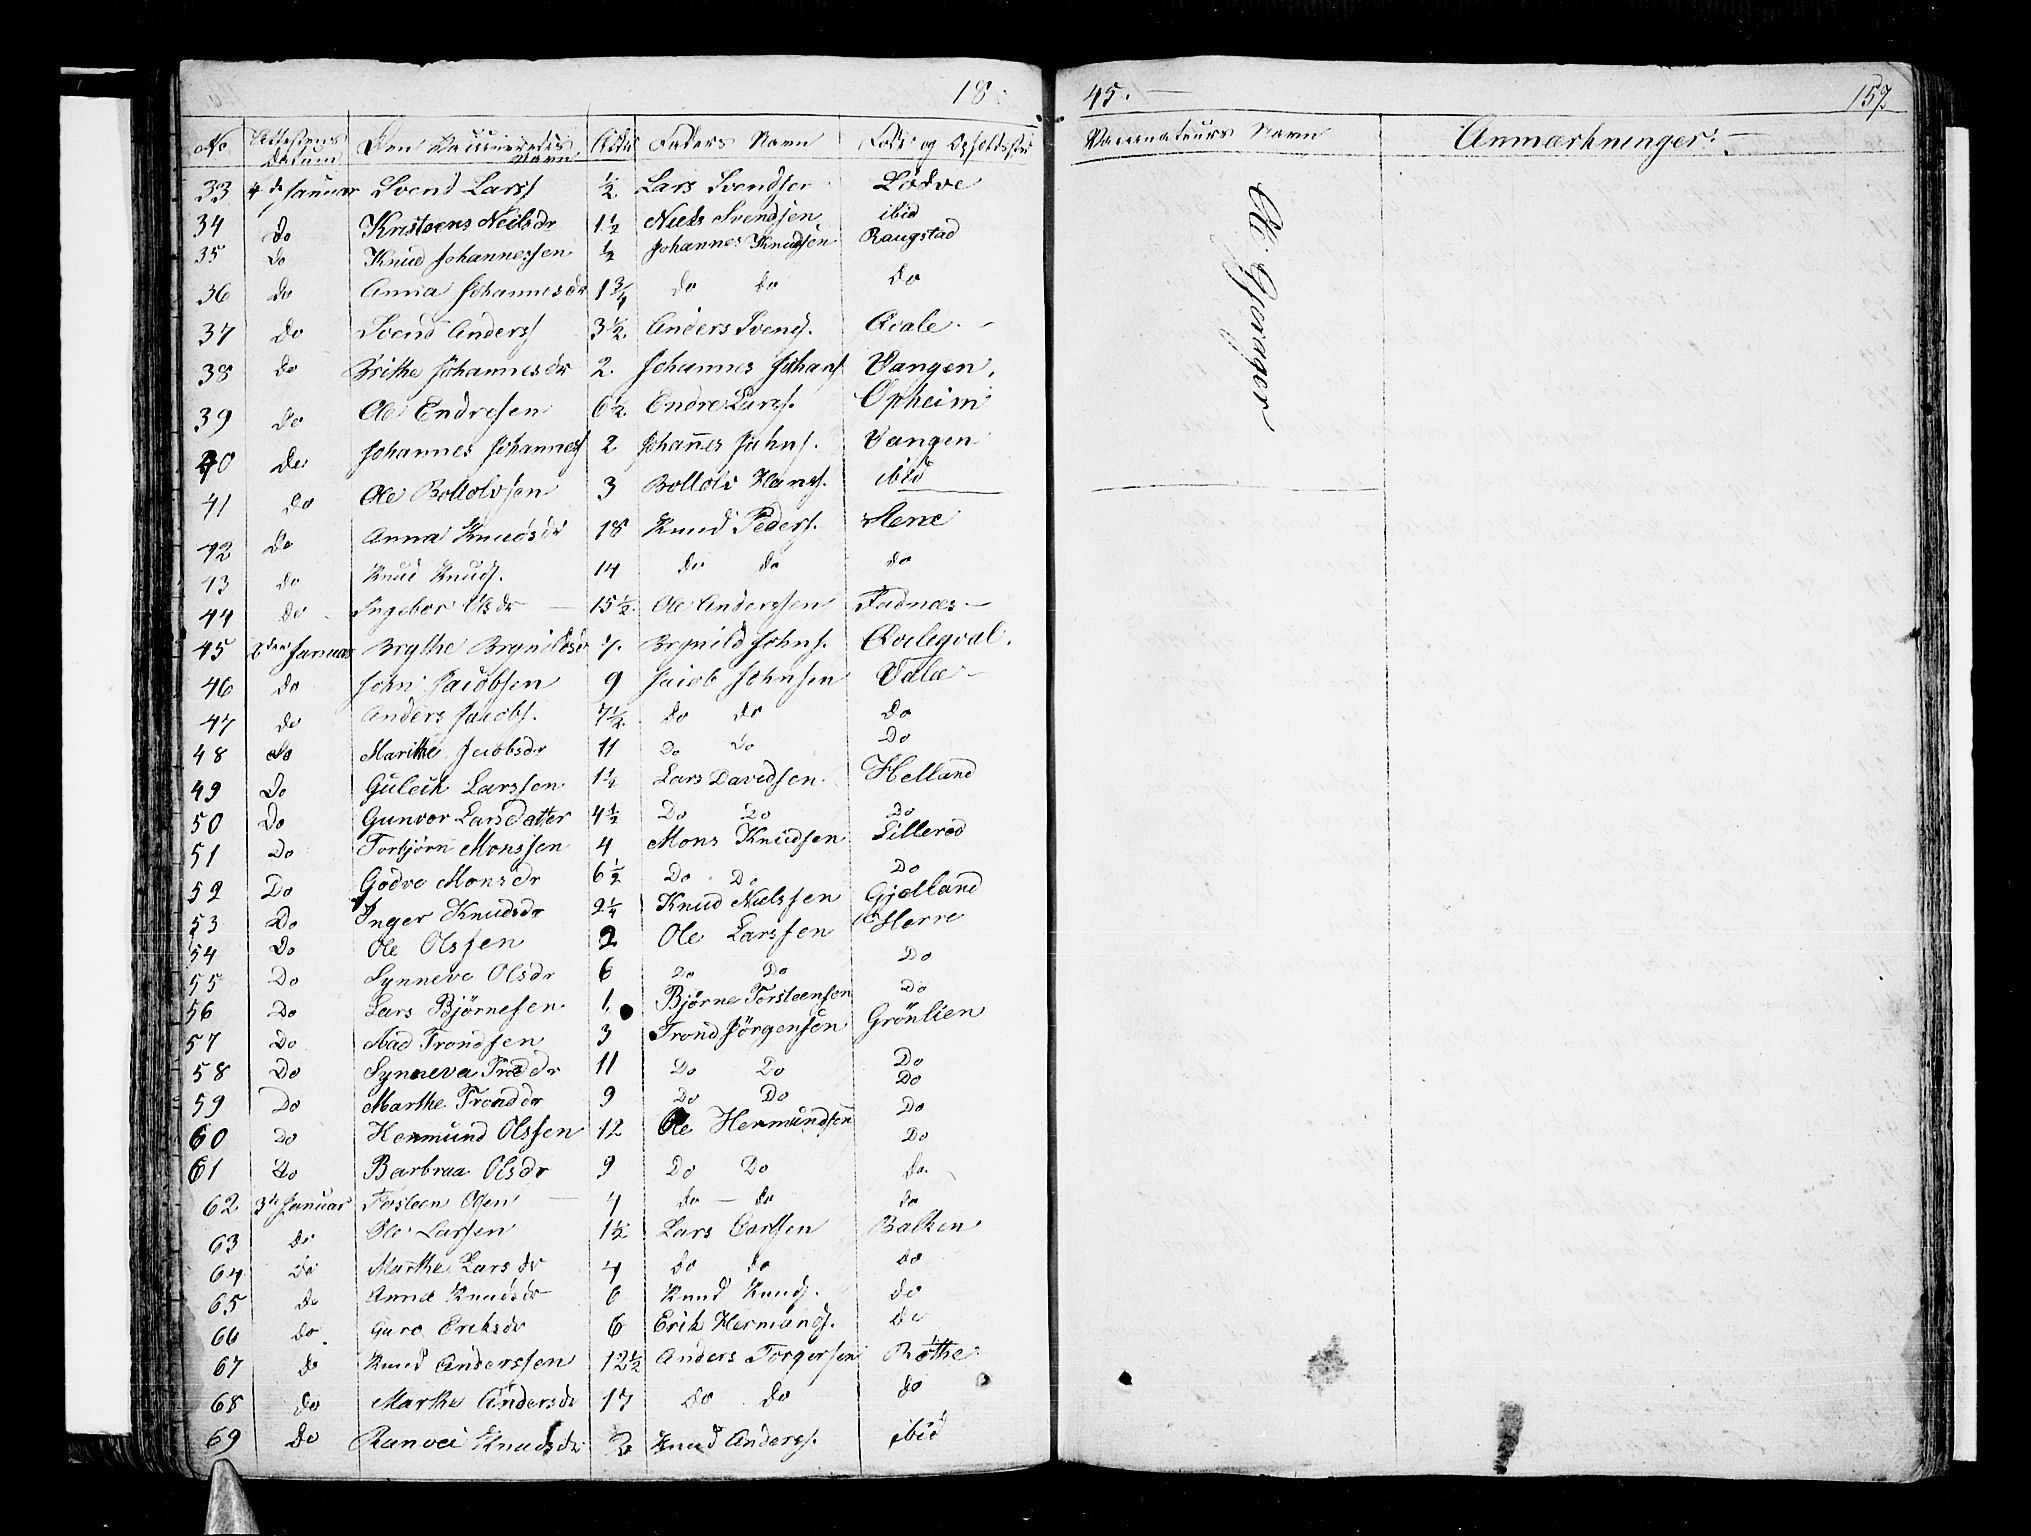 18
45.
157
No Attestens Datum Den Vaccineredes Navn Alder Faders Navn Føde og Opholdssted Vaccinateurs Navn Anmærkninger:
33 4de Januar Svend Larss ½ Lars Svendsen Lødve
34 Do Kristoens Neilsdr 1½ Niels Svendsen ibid
35 Do Knud Johannessen ½ Johannes Knudsen Raugstad
36 do Anna Johannesdr 1¾ do do do
37 do Svend Anderss 3½ Anders Svends. Qvale
38 do Brithe Johannesdr 2. Johannes Johans Vangen.
39 do Ole Endresen 6½ Endre Larss. Opheim
40 do Johannes Johanness 2 Johan̄es Johns. Vangen
41 do Ole Bottolvsen 3 Bottolv Hans. ibid
42 do Anna Knudsdr 18 Knud Peders. Mene
43 do Knud Knuds. 14 do do do
44 do Ingebor Olsdr 15½ Ole Anderssen Fadnæs
45 2den Januar Brythe Brynildsdr 7. Brynild Johns. Qvalegval.
46 do John Jacobsen 9 Jacob Johnsen Vale
47 do Anders Jacobs. 7½ do do do
48 do Marithe Jacobsdr 11 Do Do Do
49 Do Guleik Larssen 1½ Lars Davidsen Helland
50 Do Gunvor Larsdatter 4½ Do Do Do
51 Do Torbjørn Monssen 4 Mons Knudsen Lillerød
52 Do Godve Monsdr 6½ Do Do Do
53 Do Inger Knudsdr 2¼ Knud Nielssen Gjelland
54 Do Ole Olssen 2 Ole Larssen Herre
55 Do Synneve Olsdr 6 Do Do Do
56 Do Lars Bjørnesen 1, Bjørne Torsteensen Do
57 Do Aad Trondsen 3 Trond Jörgensen Grönlien
58 Do Synneva Trodr 11 Do Do Do
59 Do Marthe Tronddr 9 Do Do Do
60 Do Hermund Olssen 12 Ole Hermundsen Do
61 Do Barbraa Olsdr 9 Do Do Do
62 3de Januar Torsteen Olsen 4 do do do.
63 do Ole Larsen 1½ Lars Larssen Balken
64 do Marthe Larsdr 4 do do do
65 do Anna Knudsdr 6 Knud Knuds. do
66 do Guro Eriksdr 6 Erik Hermands. do
67 do Knud Anderssen 12½ Anders Torgersen Röthe
68 do Marthe Andersdr 17 do do do
69 Do Ranvei Knudsdr 2 Knud Anderss. ibid